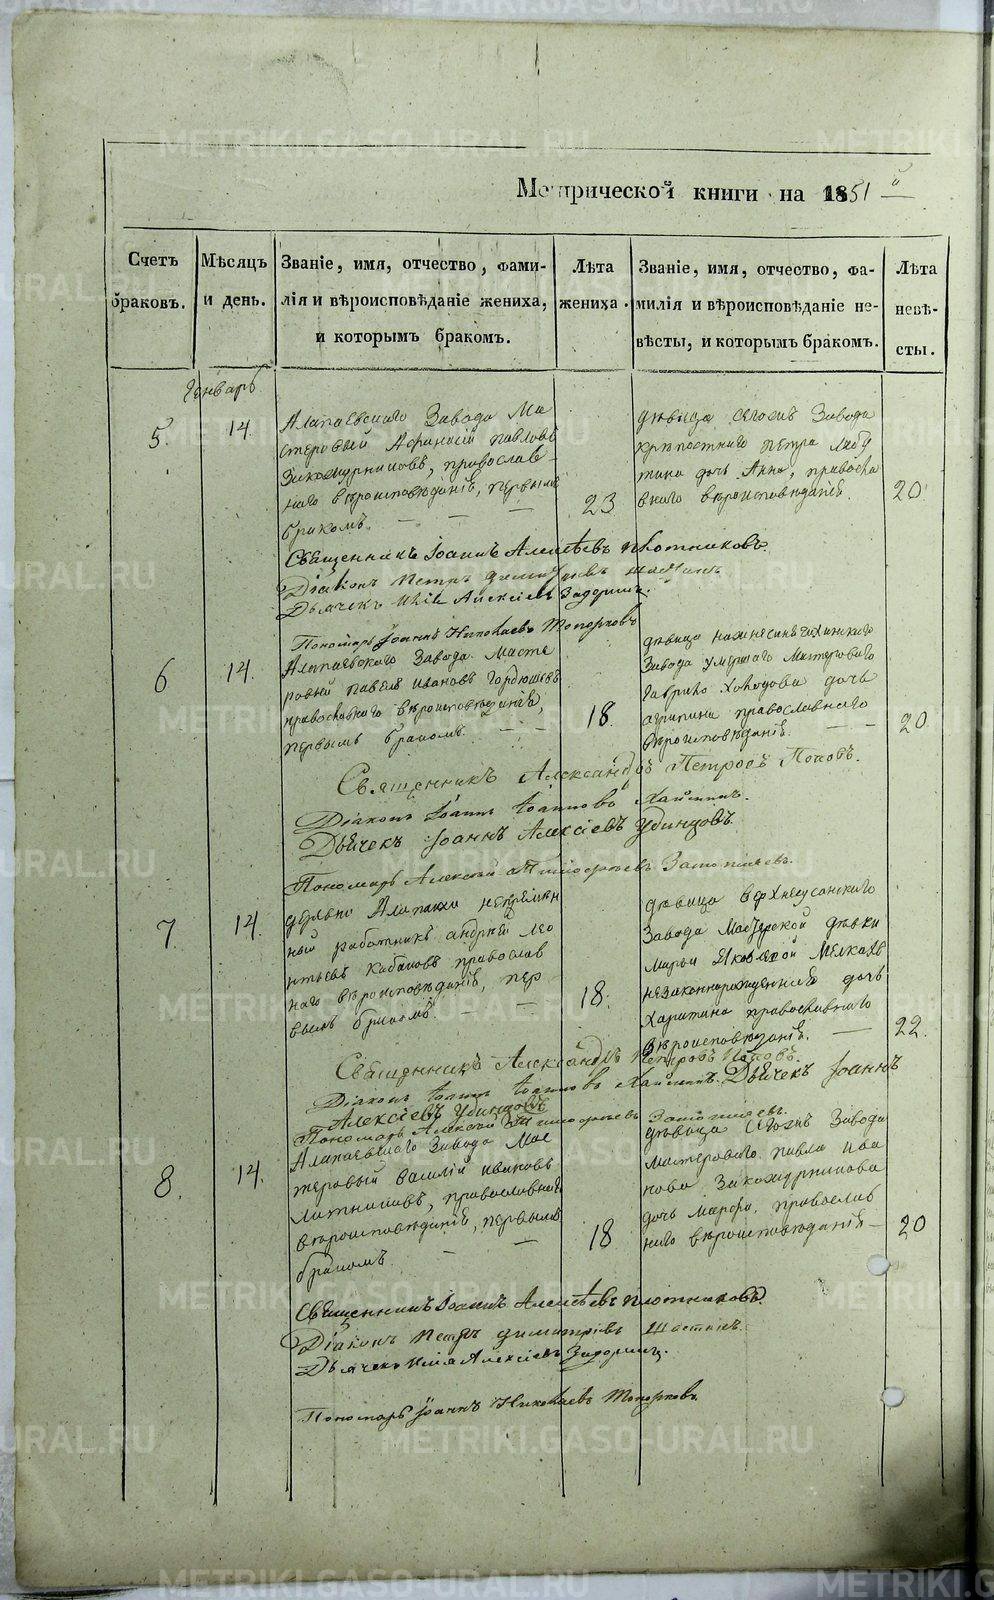 Метрической книги на 1851й
Счетъ браковъ.
Мѣсяцъ и день.
Званіе, имя, отчество, фами-
лія и вѣроисповѣданіе жениха,
и которымъ бракомъ.
Лѣта
жениха.
Званіе, имя, отчество, фа-
милія и вѣроисповѣданіе не-
вѣсты, и которымъ бракомъ.
Лѣта
невѣ-
сты.
Генварь
5.
14.
Алапаевскаго Завода Ма
стеровый Афанасій Павловъ
Закожурниковъ, православ-
наго вѣроисповѣданія, первымъ
бракомъ.
23
дѣвица Завода
крѣпостнаго Петра
дочь Анна, правосла
внаго вѣроисповѣданія.
20
Священникъ Іоаннъ Алексѣевъ Плотниковъ.
Діаконъ Петръ Димитріевъ
Дьячекъ Алексѣевъ Задоринъ.
Пономарь Іоаннъ Николаевъ Топорковъ
6
14.
Алапаевскаго Завода Масте
ровый Павелъ Ивановъ Гордюшевъ
православнаго вѣроисповѣданія,
первымъ бракомъ.
18.
дѣвица
Завода умершаго Мастероваго
Гаврило Холодова дочь
агрипина православнаго
вѣроисповѣданія.
20
Священникъ Александръ Петровъ Поповъ.
Діаконъ Іоаннъ Іоанновъ
Дьячекъ Іоаннъ Алексіевъ Удинцовъ.
Пономарь Алексѣй Тимофѣевъ
7.
14.
непремѣн
ный работникъ андрей Лео
нтьевъ Кабаковъ православ
наго вѣроисповѣданія, пер
вымъ бракомъ.
18.
дѣвица
Завода Мастерской дѣвки
Марьи Яковлевой
незаконнорожденная дочь
Харитина православнаго
вѣроисповѣданія.
22.
Священникъ Александръ Петровъ Поповъ.
Діаконъ Іоаннъ Іоанновъ Дьячекъ Іоаннъ
Алексіевъ Удинцовъ
Пономарь Алексѣй Тимофѣевъ
8.
14.
Алапаевскаго Завода Мас
теровый Василій Ивановъ
Латниковъ, православнаго
вѣроисповѣданія, первымъ
бракомъ.
18
дѣвица Завода
мастероваго павла Ива
нова Закожурникова
дочь Марфа, православ
наго вѣроисповѣданія
20
Священникъ Іоаннъ Алексѣевъ Плотниковъ.
Діаконъ Петръ Димитріевъ
Дьячекъ Илія Алексѣевъ Задоринъ.
Пономарь Іоаннъ Николаевъ Топорковъ.
METRIKI.GASO-URAL.RU